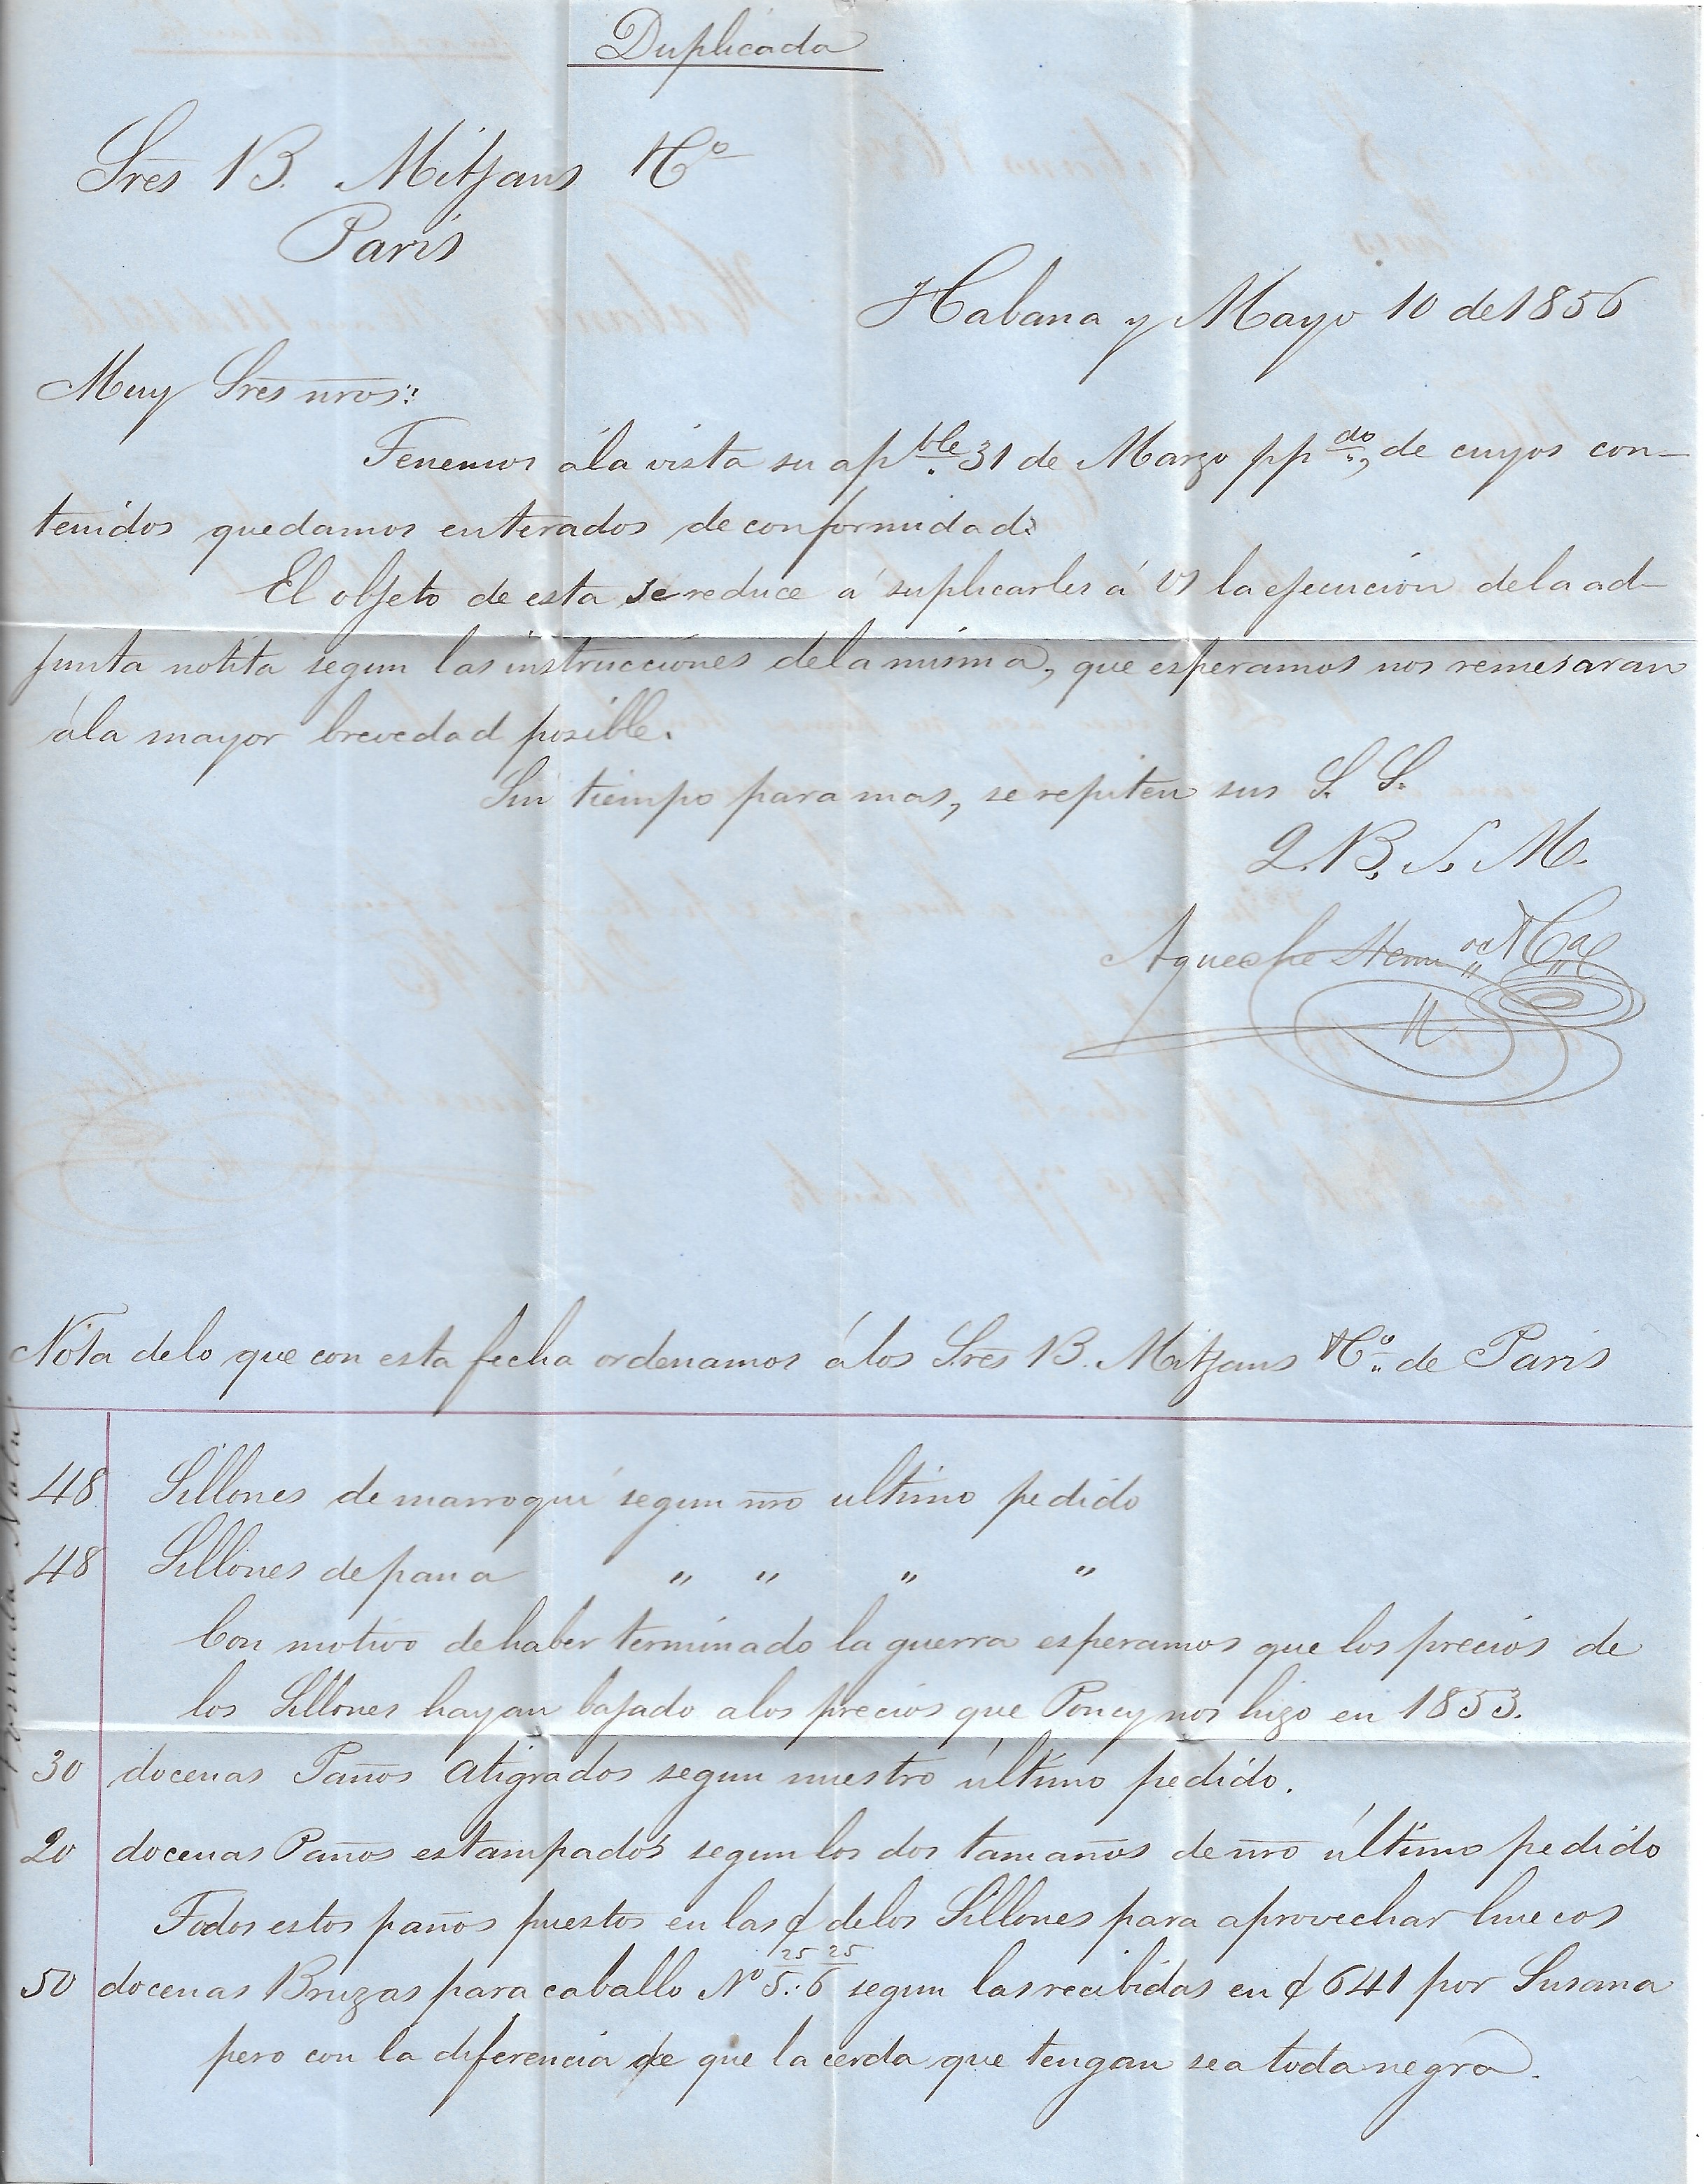 Duplicada
Sres B. Mitjans &Cº
Paris
Habana y Mayo 10 de 1856
Muy Sres nros:
Tenemos á la vista su apble 31 de Marzo ppdo, de cuyos con-
tenidos quedamos enterados de conformidad.
El objeto de esta se reduce á suplicarles á Vs la ejecucion de la ad-
junta notita segun las instrucciones de la misma, que esperamos nos remesaran
á la mayor brevedad posible.
Sin tiempo para mas, se repiten sus S. S.
Q. B. S. M.
Hermos &Ca
Nota de lo que con esta fecha ordenamos á los Sres B. Mitjans &Cº de Paris
48 Sillones de marroqui segun nro ultimo pedido
48 Sillones de pana " " " "
Con motivo de haber terminado la guerra esperamos que los precios de
los Sillones hayan bajado a los precios que Poncy nos hizo en 1853.
30 docenas Paños atigrados segun nuestro último pedido.
20 docenas Paños estampados segun los dos tamaños de nro último pedido
Todos estos paños puestos en las ¢ de los Sillones para aprovechar huecos
50 docenas Bruzas para caballo Nº 25/5.: 25/6 segun las recibidas en ¢ 641 por Susana
pero con la diferencia de que la cerda que tengan sea toda negra.